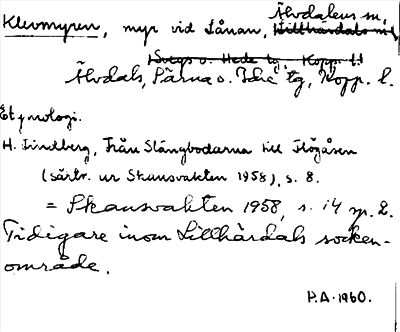 Älvdalens sn,
Klevmyren, myr vid Lånan, Lillhärdals sn
Svegs o. Hede tg, Kopp. l.
Älvdals, Särna o. Idre tg, Kopp. l.
Etymologi.
H. Lindberg, Från Slängbodarna till Högåsen
(särtr. ur Skansvakten 1958), s. 8.
= Skansvakten 1958, s. 14 sp. 2.
Tidigare inom Lillhärdals socken-
område.
P.A. 1960.